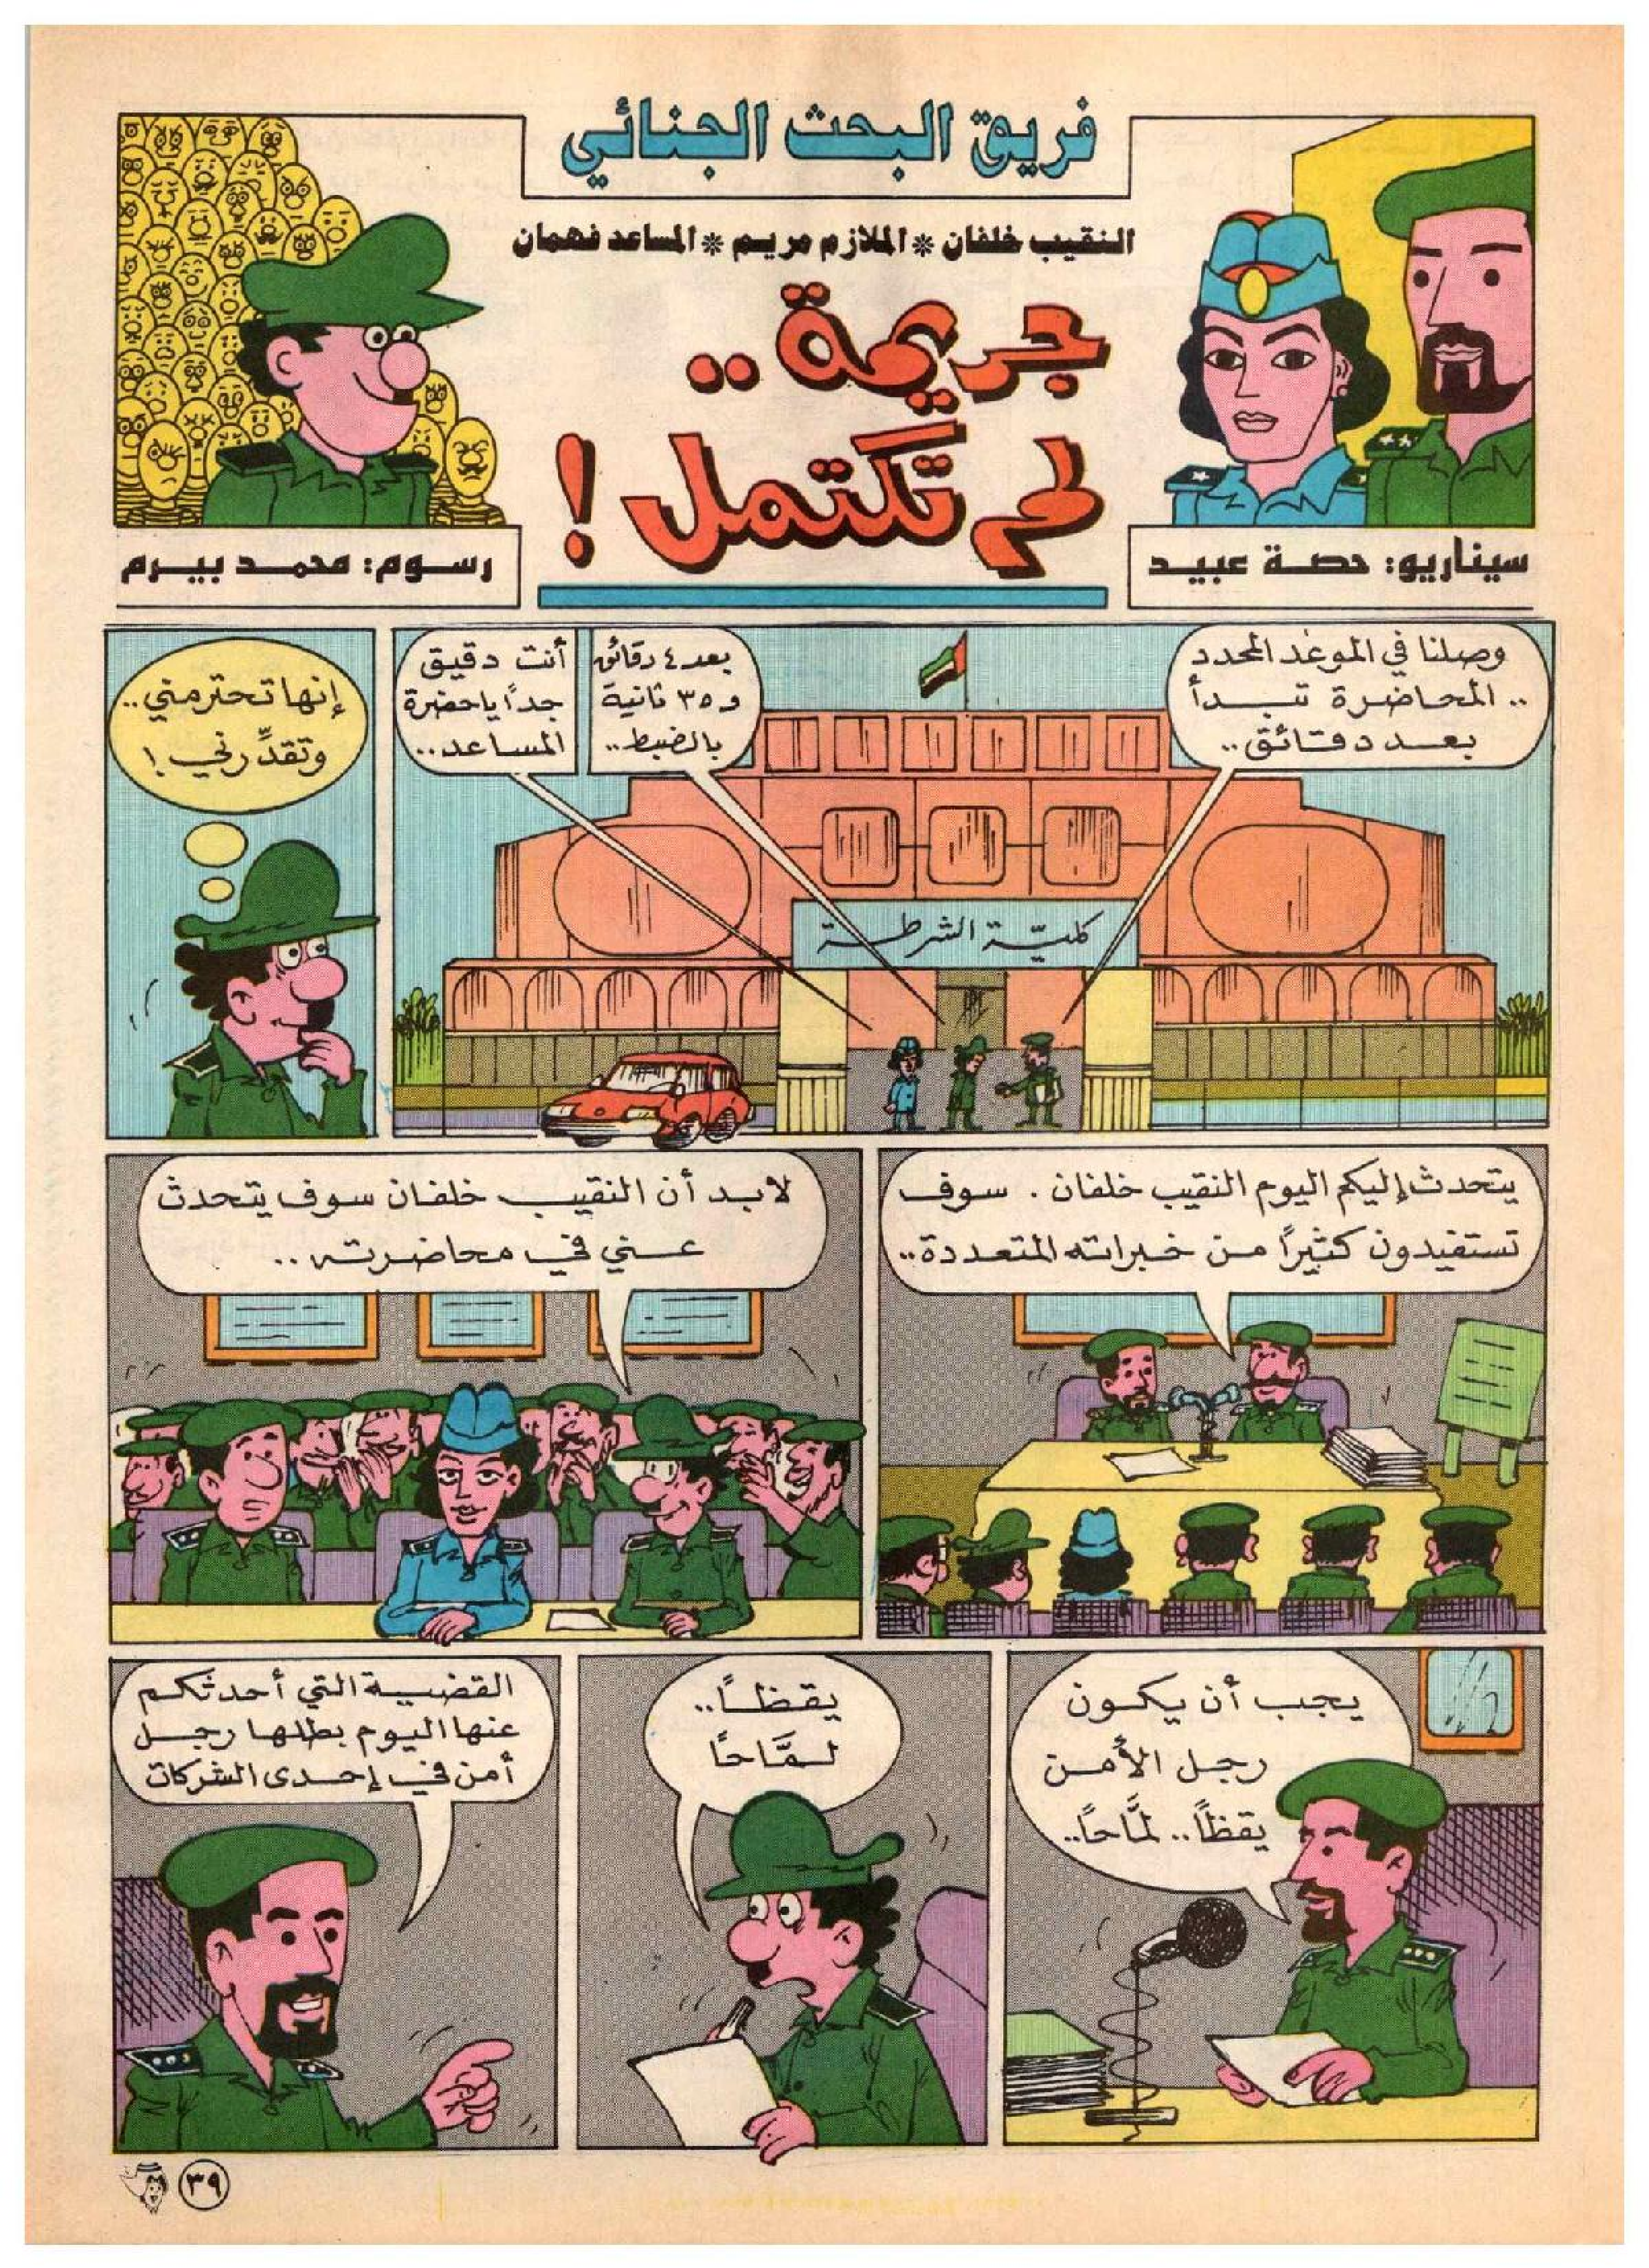 فريق البحث الجنائي
النقيب خلفان * الملازم مريم * المساعد فهمان
جريمة..
لم تكتمل!
سيناريو: حصة عبيد
رسوم: محمد بيرم
وصلنا في الموعد المحدد
.. المحاضرة تبدأ
بعد دقائق..
بعد ٤ دقائق
و ٣٥ ثانية
بالضبط..
أنت دقيق
جداً يا حضرة
المساعد..
كليّة الشرطة
إنها تحترمني..
وتقدِّرني!
يتحدث إليكم اليوم النقيب خلفان . سوف
تستفيدون كثيراً من خبراته المتعددة..
لابد أن النقيب خلفان سوف يتحدث
عني في محاضرته..
يجب أن يكون
رجل الأمن
يقظاً.. لمَّاحاً..
يقظاً..
لمَّاحاً
القضية التي أحدثكم
عنها اليوم بطلها رجل
أمن في إحدى الشركات
٣٩